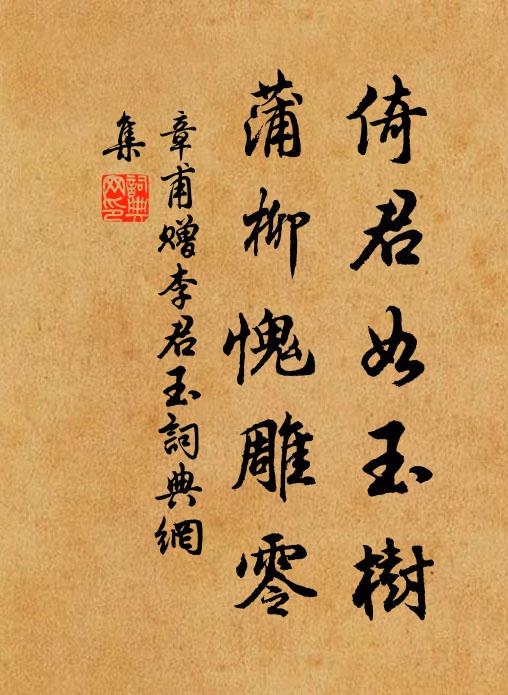 倚君如玉樹
蒲柳愧雕零
章甫贈李君玉詞典網
集
詞典網印